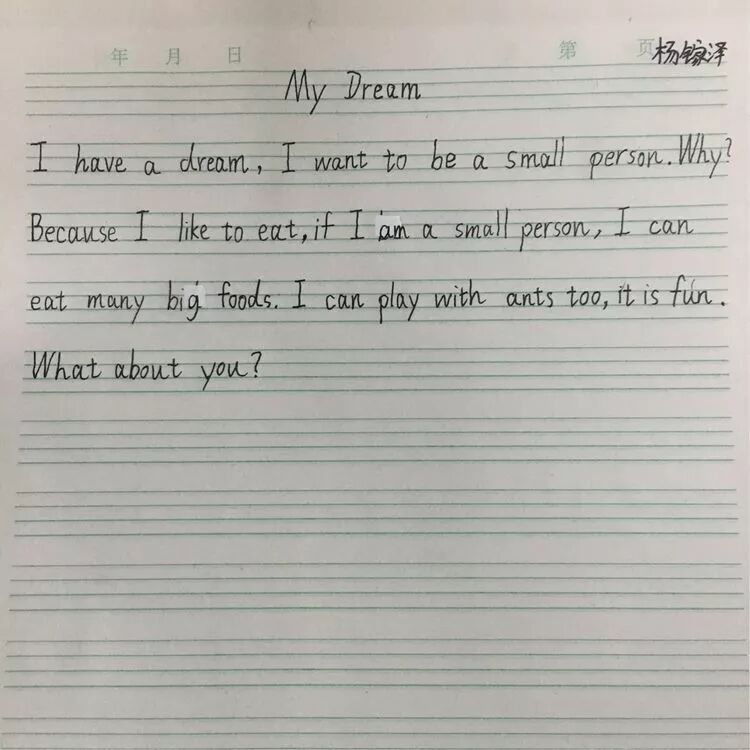 年 月 日 第 页 杨镓泽
My Dream
I have a dream, I want to be a small person. Why?
Because I like to eat, if I am a small person, I can
eat many big foods. I can play with ants too, it is fun.
What about you?